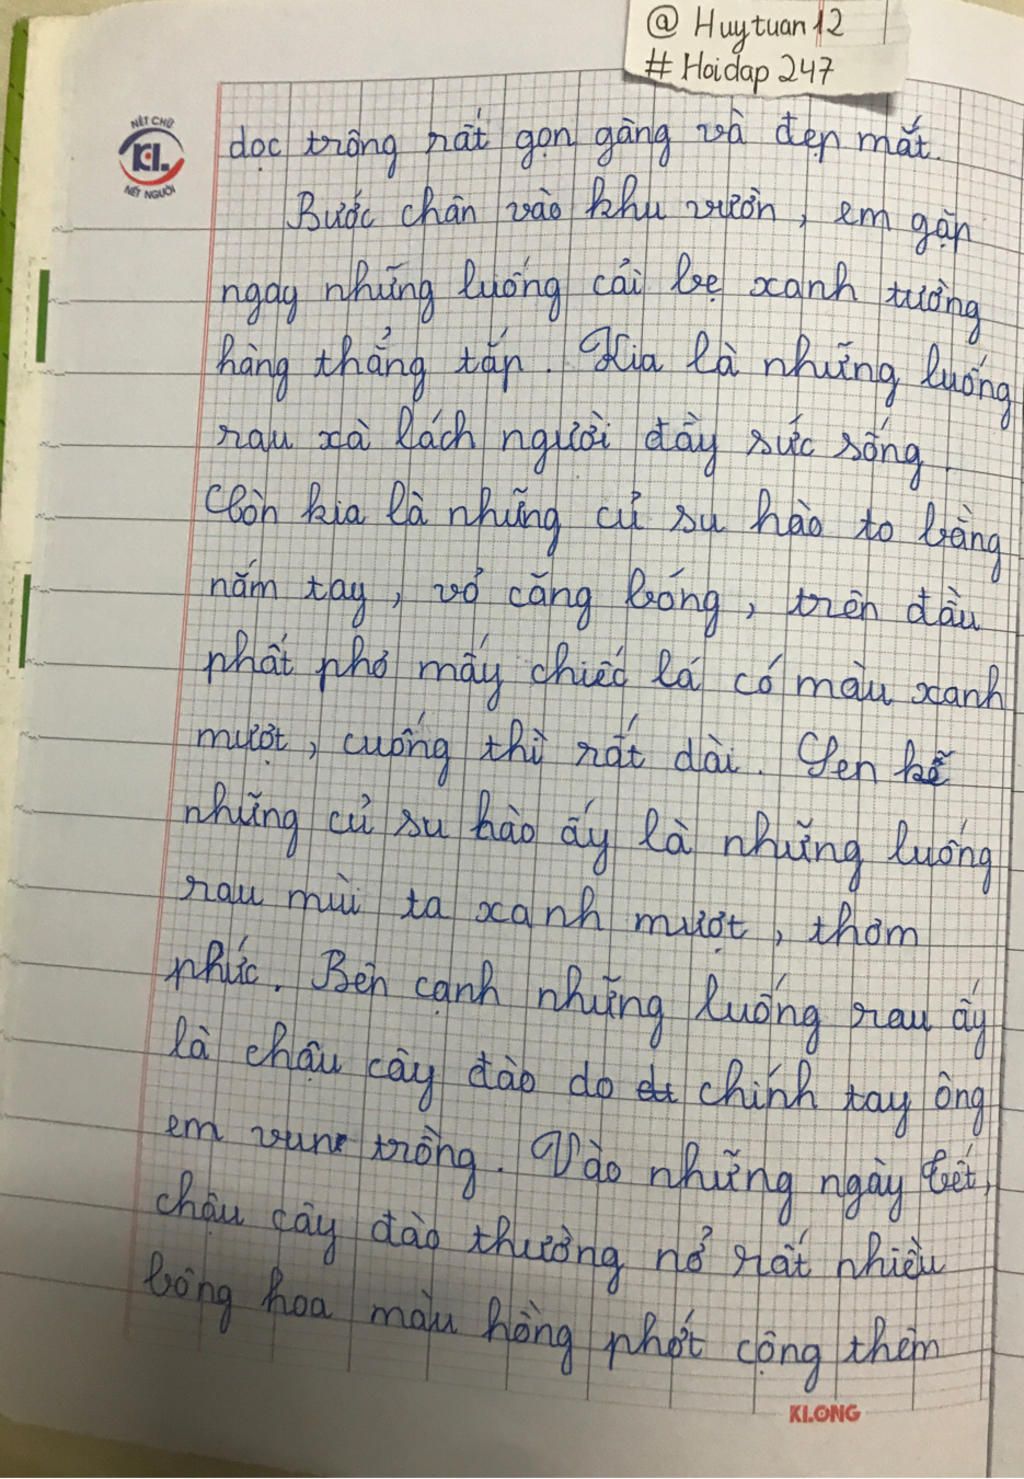 @ Huytuan12
# Hoidap 247
NÉT CHỮ
KL.
NẾT NGƯỜI
dọc trông rất gọn gàng và đẹp mắt.
Bước chân vào khu vườn, em gặp
ngay những luống cải bẹ xanh tường
hàng thẳng tắp. Kia là những luống
rau xà lách người đầy sức sống.
Còn kia là những củ su hào to bằng
nắm tay, vỏ căng bóng, trên đầu
phất phơ mấy chiếc lá có màu xanh
mượt, cuống thì rất dài. Sen kẽ
những củ su hào ấy là những luống
rau mùi ta xanh mượt, thơm
phức. Bên cạnh những luống rau ấy
là chậu cây đào do chính tay ông
em vun trồng. Vào những ngày tết,
chậu cây đào thường nở rất nhiều
bông hoa màu hồng phớt cộng thêm
KLONG